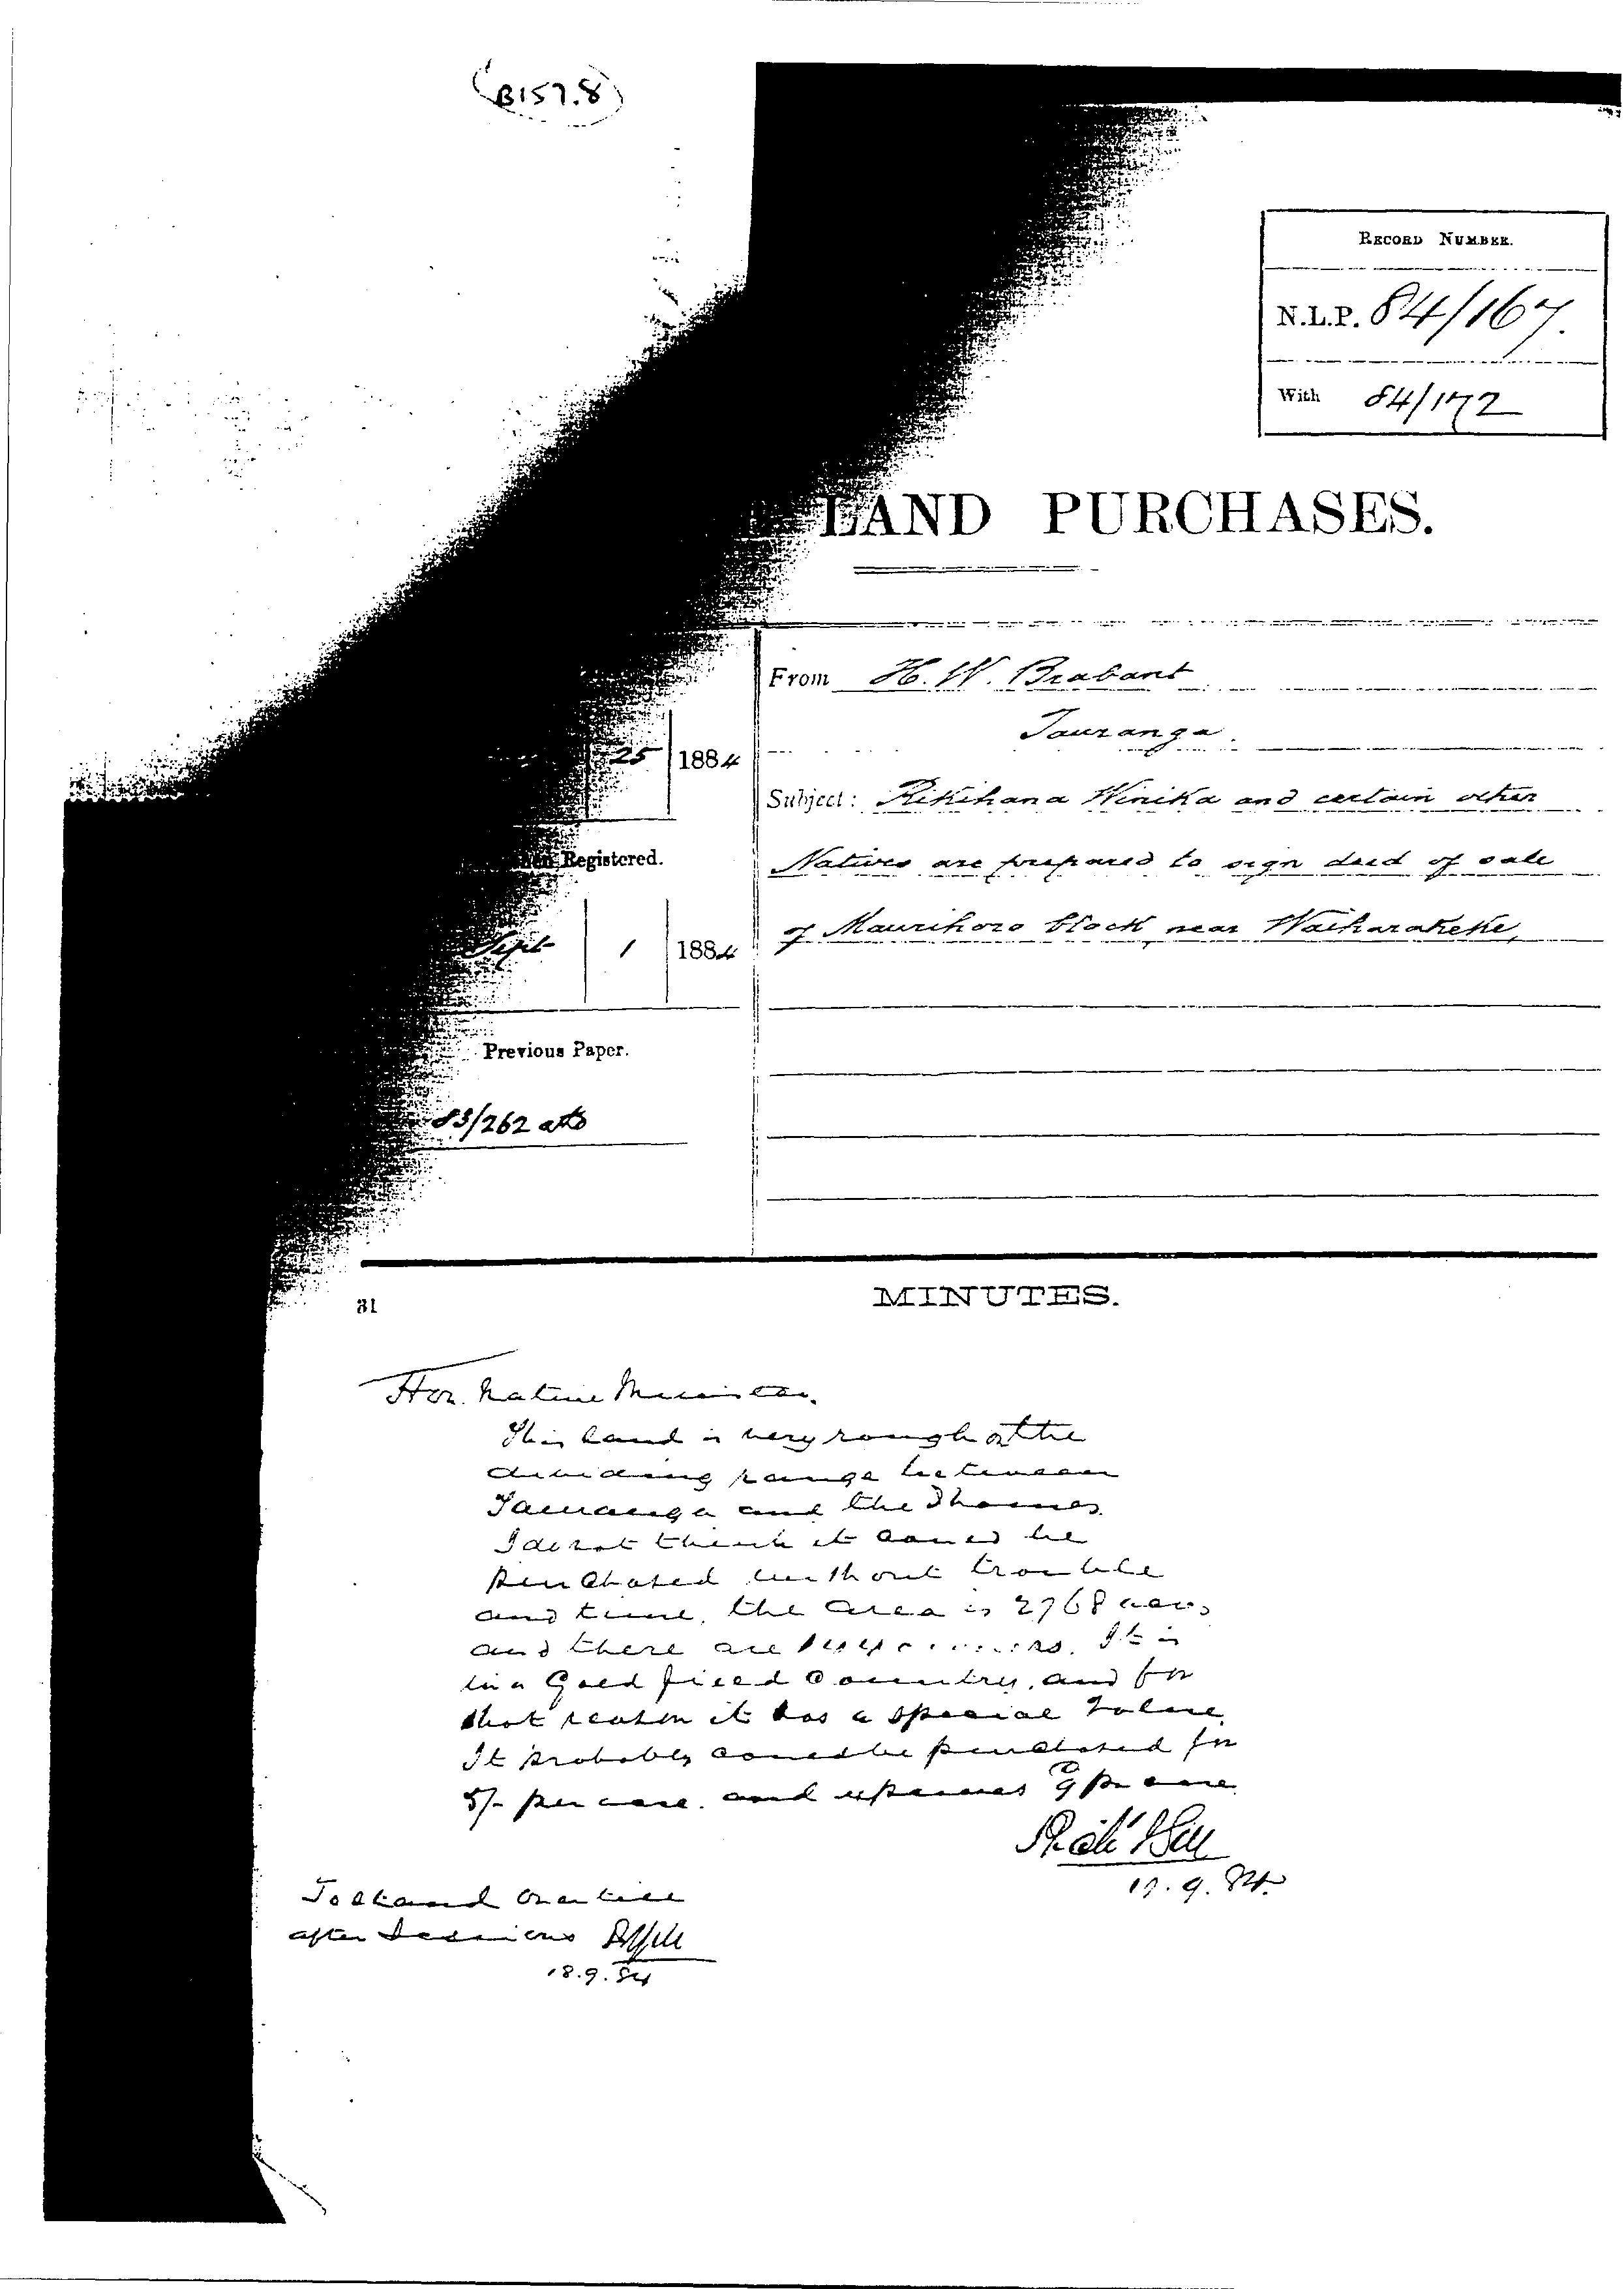 B157.8
RECORD NUMBER.
N.L.P. 84/167.
With 84/172
LAND PURCHASES.
From H. W. Brabant
Tauranga.
25 1884
Subject: Rikihana Winika and certain other
Registered.
Natives are prepared to sign deed of sale
of Maurihoro block near Waiharakeke,
Sept 1 1884
Previous Paper.
83/262
31
MINUTES.
Hon. Native Minister.
This land is very rough at the
dividing range between
Tauranga and the Thames
I do not think it could be
purchased without trouble
and time, the area is 2768 acres
and there are It is
in a Gold field Country, and for
that reason it has a special value
It probably could be purchased for
5/- per acre. and expenses 9 per acre
17.9.84.
To stand over till
after Sessions
18.9.84